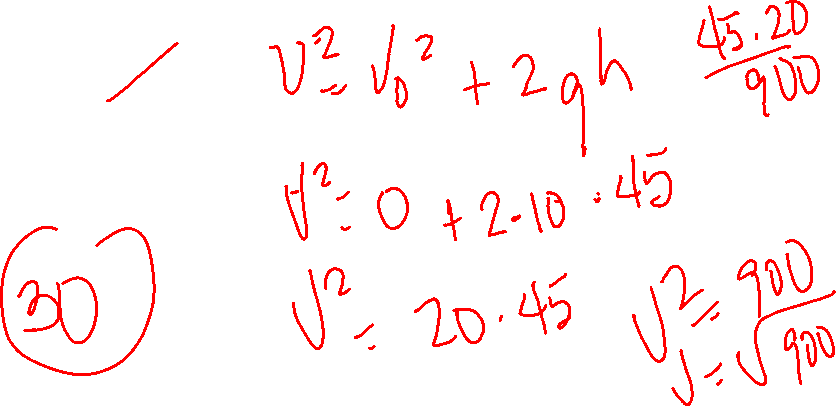 V² = V₀² + 2gh
45.20
900
V² = 0 + 2.10.45
V² = 20.45
V² = 900
V = √900
30